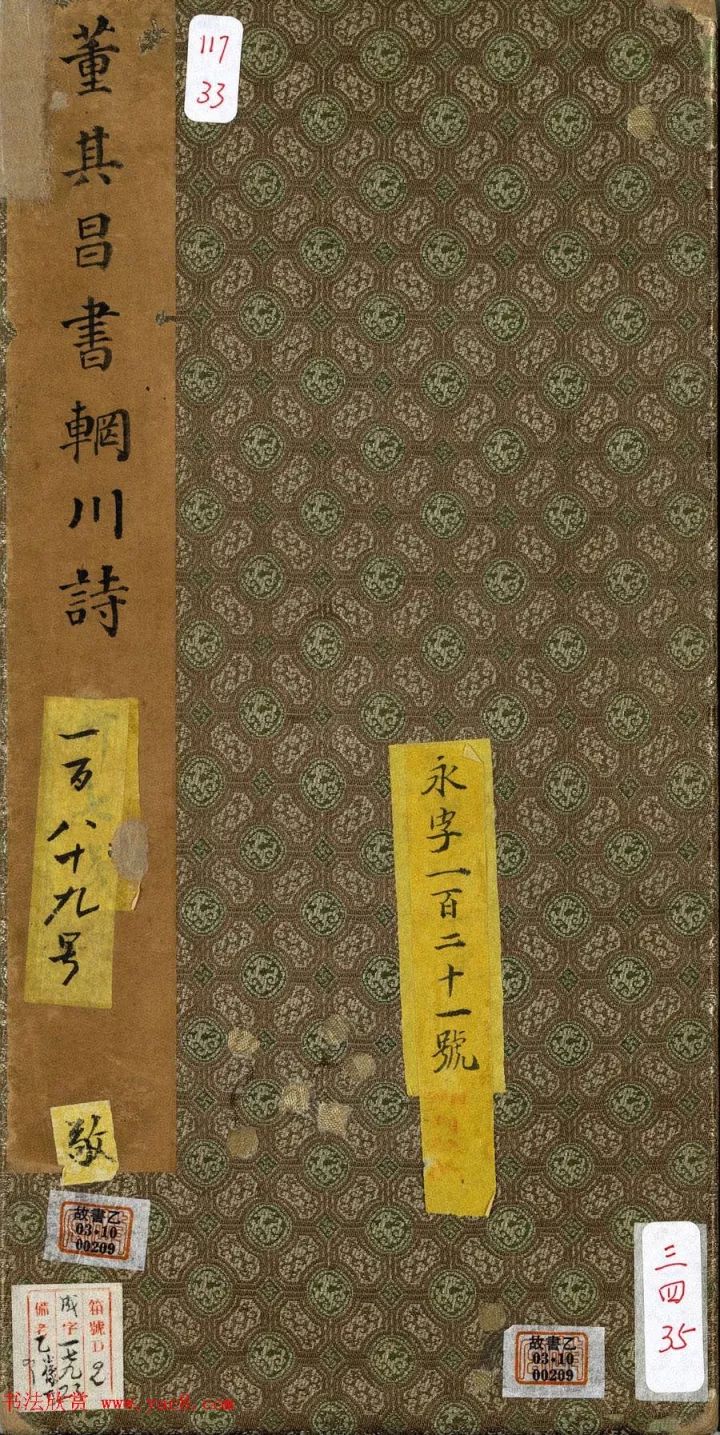 董其昌書輞川詩
117
33
一百八十九号
永字一百二十一號
敬
故書乙
03·10
00209
箱號D
成字一
備考乙
三四
35
故書乙
03·10
00209
书法欣赏 www.yac8.com